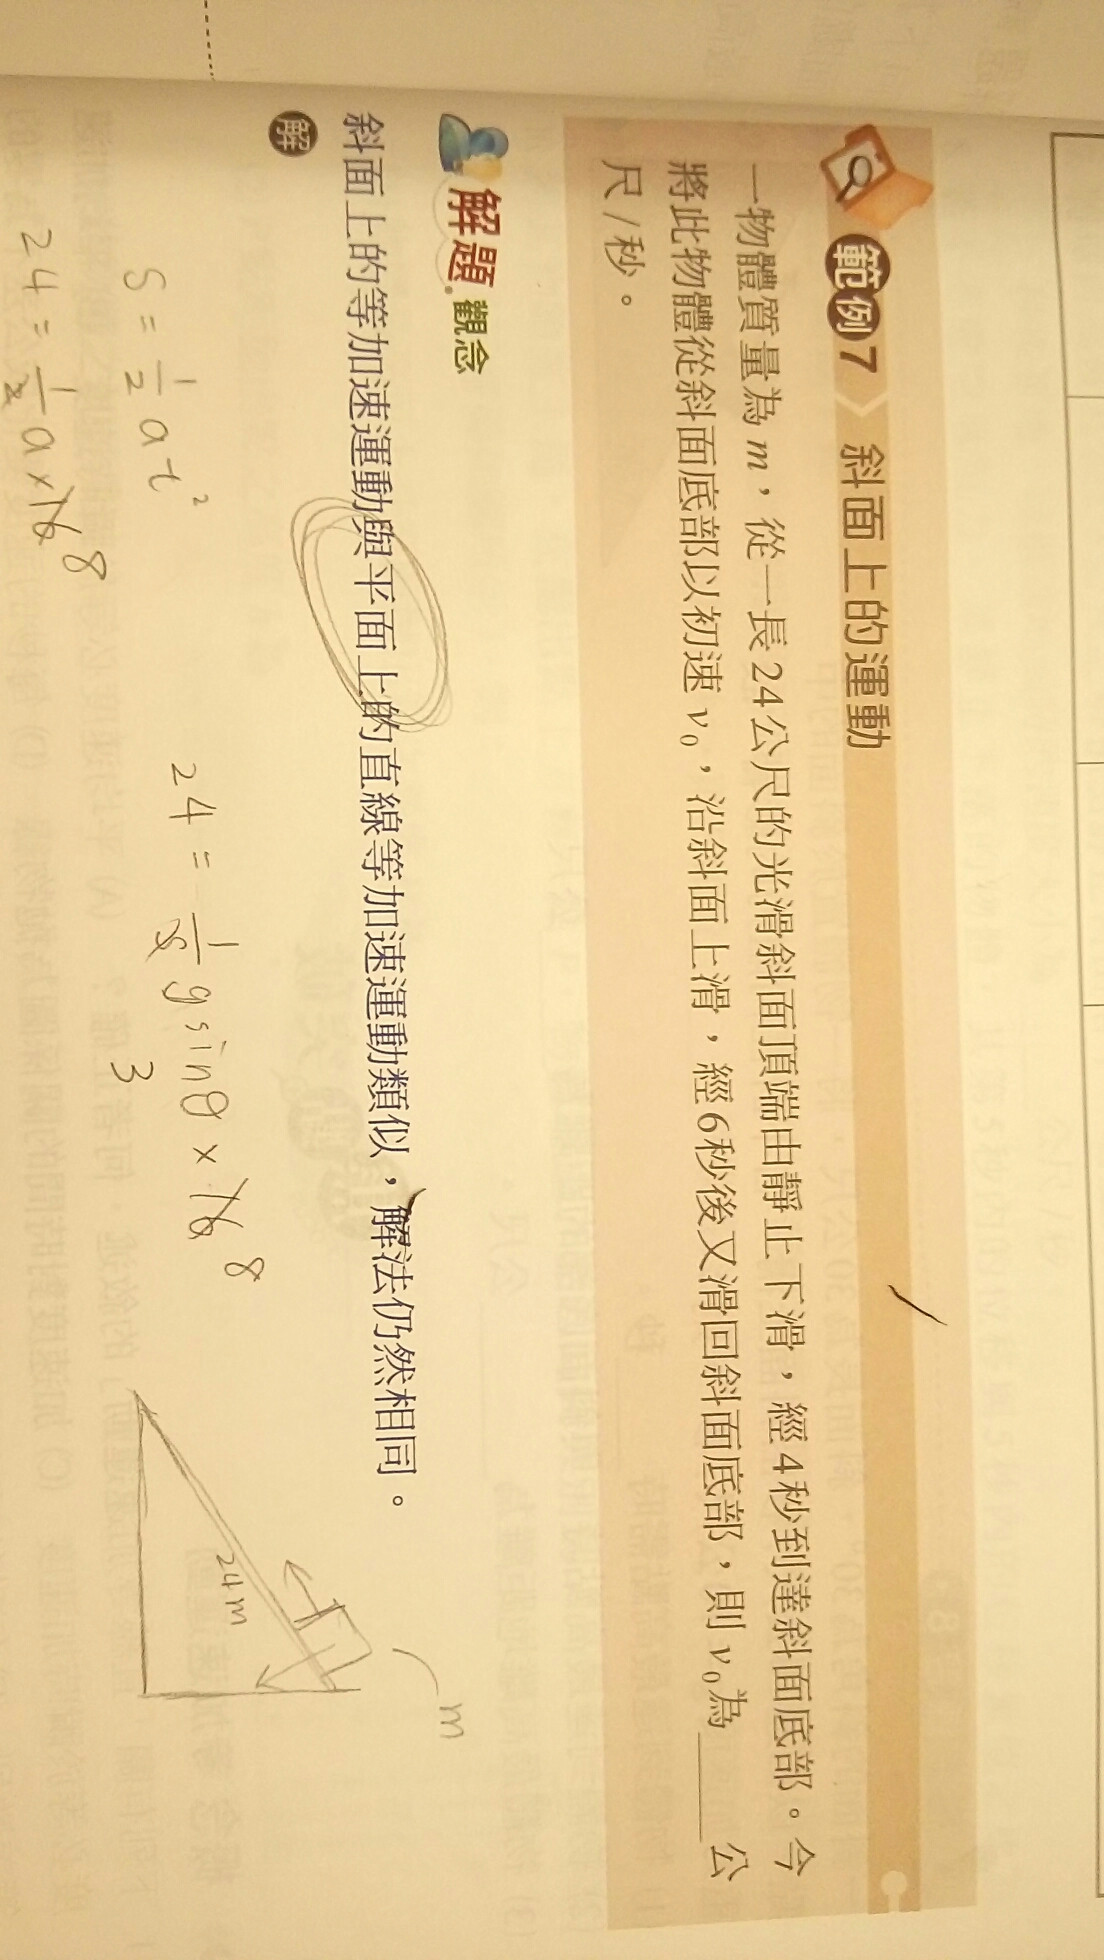 範例7 斜面上的運動
一物體質量為m，從一長24公尺的光滑斜面頂端由靜止下滑，經4秒到達斜面底部。今
將此物體從斜面底部以初速v₀，沿斜面上滑，經6秒後又滑回斜面底部，則v₀為____公
尺/秒。
解題觀念
斜面上的等加速運動與平面上的直線等加速運動類似，解法仍然相同。
解
S = 1/2 at²
24 = 1/2 a × 16 8
24 = 1/2 g sinθ × 16 8
3
24m
m